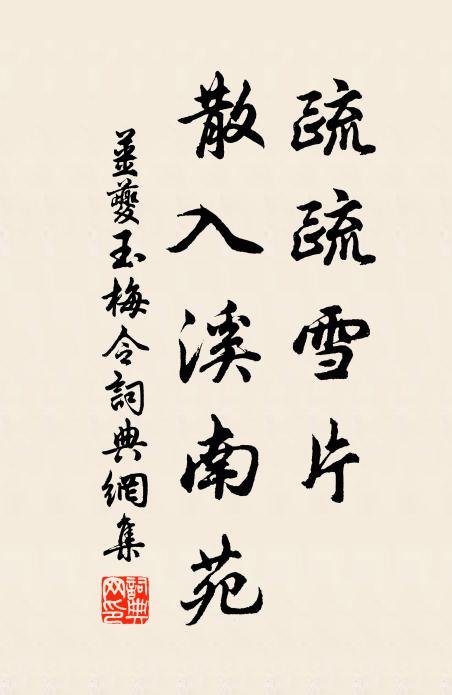 疏疏雪片
散入溪南苑
姜夔玉梅令詞典網集
詞典網印